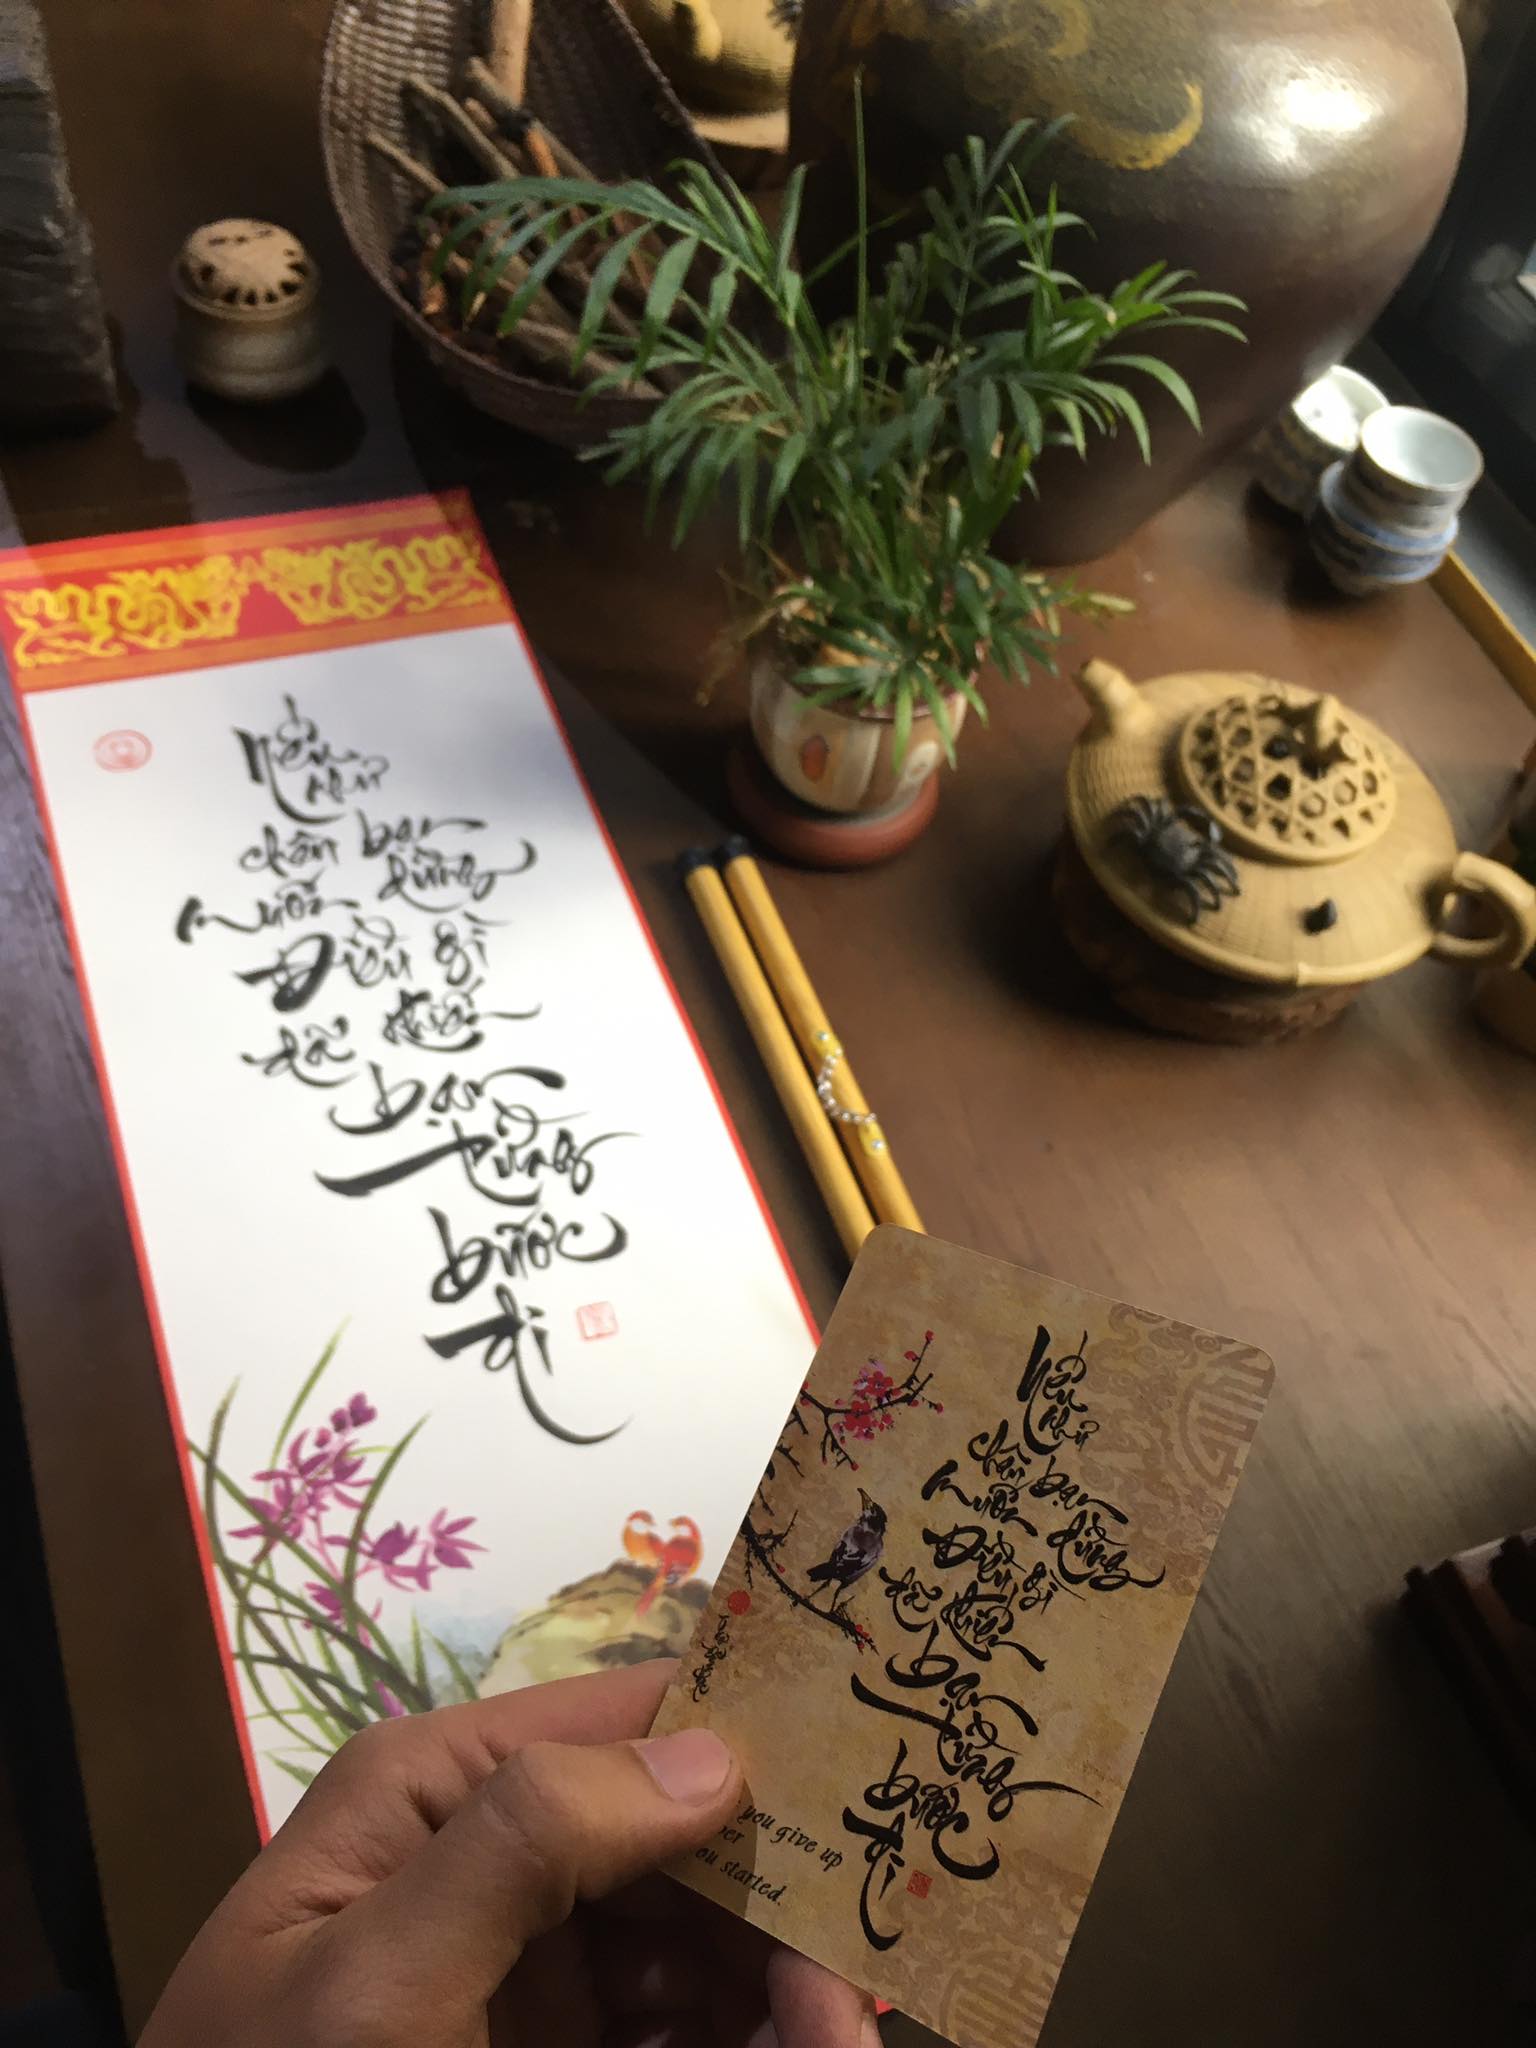 Nếu như
chân bạn
muốn dừng
Điều gì
đã khiến
bạn
từng
bước
đi
Nếu như
chân bạn
muốn dừng
Điều gì
đã khiến
bạn
từng
bước
đi
you give up
ou started.